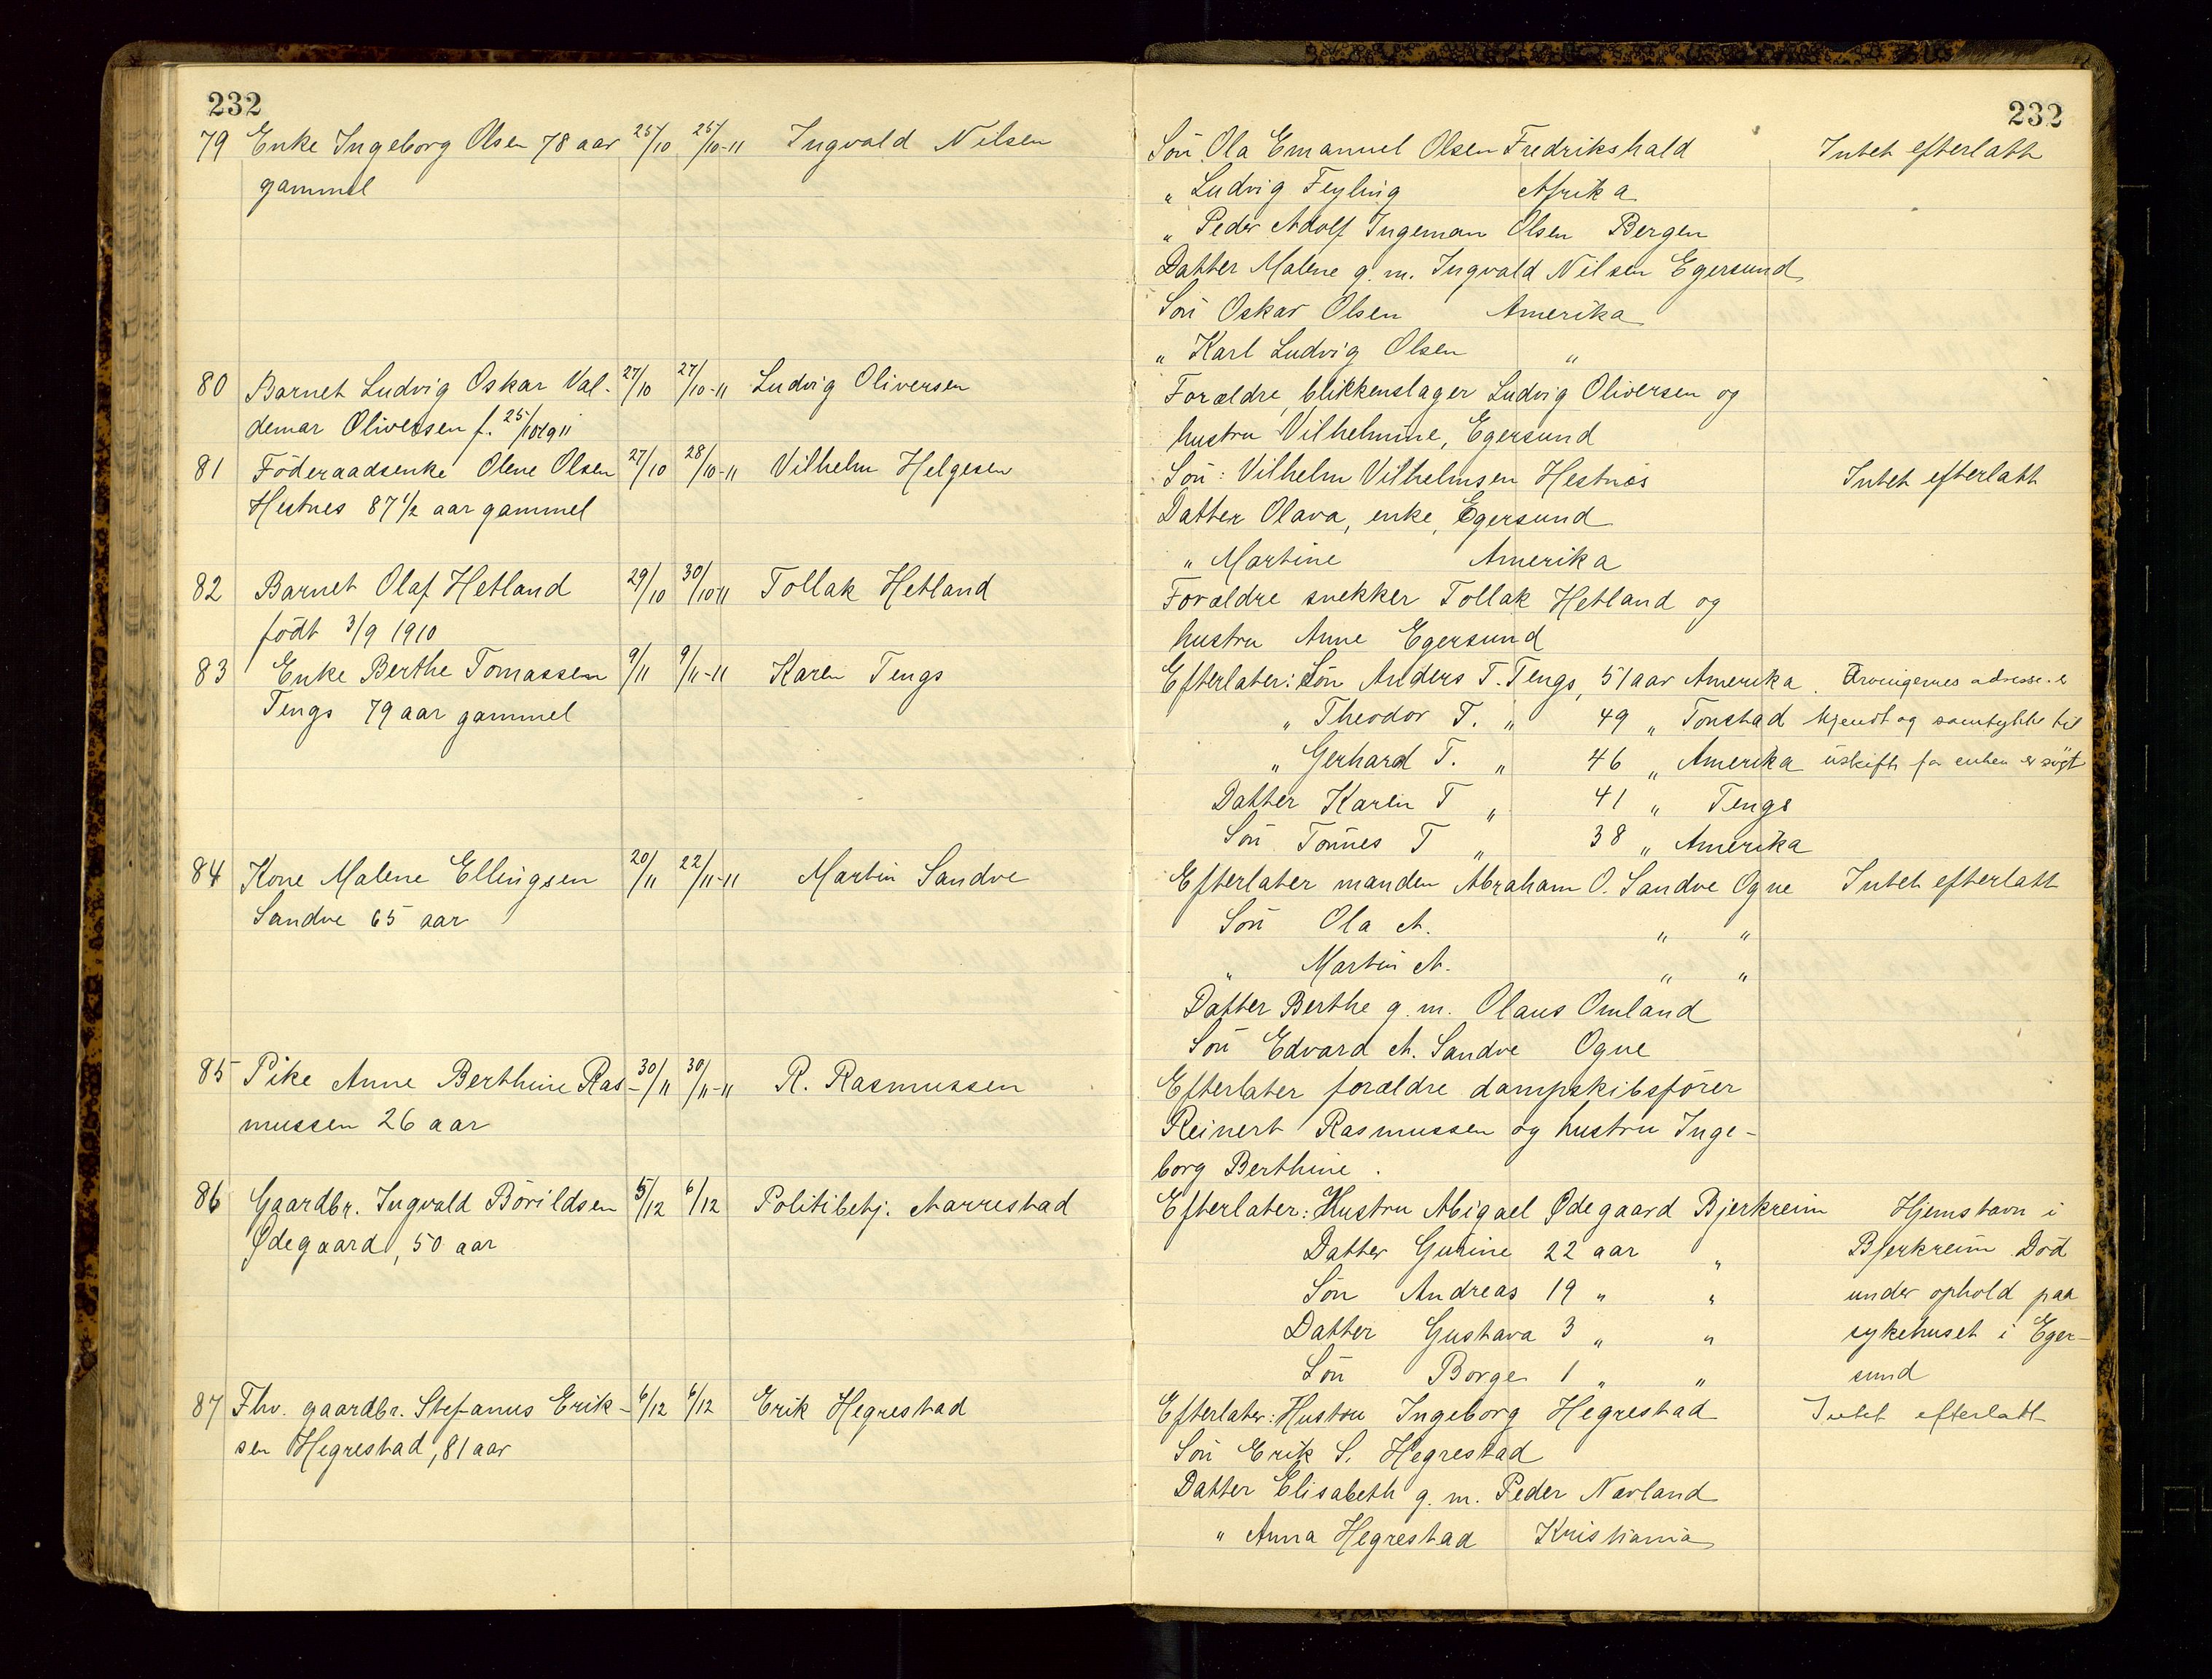 232
232
79 Enke Ingeborg Olsen 78 aar 25/10 25/10-11 Ingvald Nilsen
gammel
Sön Ola Emanuel Olsen Fredrikshald Intet efterlatt
" Ludvig Feyling Afrika
" Peder Adolf Ingeman Olsen Bergen
Datter Malene g. m. Ingvald Nilsen Egersund
Sön Oskar Olsen Amerika
" Karl Ludvig Olsen "
80 Barnet Ludvig Oskar Val- 27/10 27/10-11 Ludvig Oliversen
demar Oliversen f. 25/10 1911
Forældre, blikkenslager Ludvig Oliversen og
hustru Vilhelmine, Egersund
81 Föderaadsenke Olene Olsen 27/10 28/10-11 Vilhelm Helgesen
Hestnes 87 1/2 aar gammel
Sön: Vilhelm Vilhelmsen Hestnes Intet efterlatt
Datter Olava, enke, Egersund
" Martine Amerika
82 Barnet Olaf Hetland 29/10 30/10 11 Tollak Hetland
födt 3/9 1910
Forældre snekker Tollak Hetland og
hustru Anne Egersund
83 Enke Berthe Tomassen 9/11 9/11-11 Karen Tengs
Tengs 79 aar gammel
Efterlater: Sön Anders T. Tengs, 51 aar Amerika. Arvingernes adresse. er
" Theodor T. " 49 " Tonstad kjendt og samtykke til
" Gerhard T. " 46 " Amerika uskifte for enken er søgt
Datter Karen T " 41 " Tengs
Sön Tönnes T " 38 " Amerika
84 Kone Malene Ellingsen 20/11 22/11-11 Martin Sandve
Sandve 65 aar
Efterlater manden Abraham O. Sandve Ogne Intet efterlatt
Sön Ola A. " "
" Martin A. " "
Datter Berthe g. m. Olaus Omland
Sön Edvard A. Sandve Ogne
85 Pike Anne Berthine Ras- 30/11 30/11-11 R. Rasmussen
mussen 26 aar
Efterlater forældre dampskibsförer
Reinert Rasmussen og hustru Inge-
borg Berthine.
86 Gaardbr. Ingvald Börildsen 5/12 6/12 Politibetj. Aarrestad
Ødegaard, 50 aar
Efterlater: Hustru Abigael Ødegaard Bjerkreim Hjemstavn i
Datter Gurine 22 aar " Bjerkreim. Död
Sön Andreas 19 " " under ophold paa
Datter Gustava 3 " " sykehuset i Eger-
Sön Borge 1 " " sund
87 Fhv. gaardbr. Stefanus Erik- 6/12 6/12 Erik Hegrestad
sen Hegrestad, 81 aar
Efterlater: Hustru Ingeborg Hegrestad Intet efterlatt
Sön Erik S. Hegrestad
Datter Elisabeth g. m. Peder Nevland
" Anna Hegrestad Kristiania